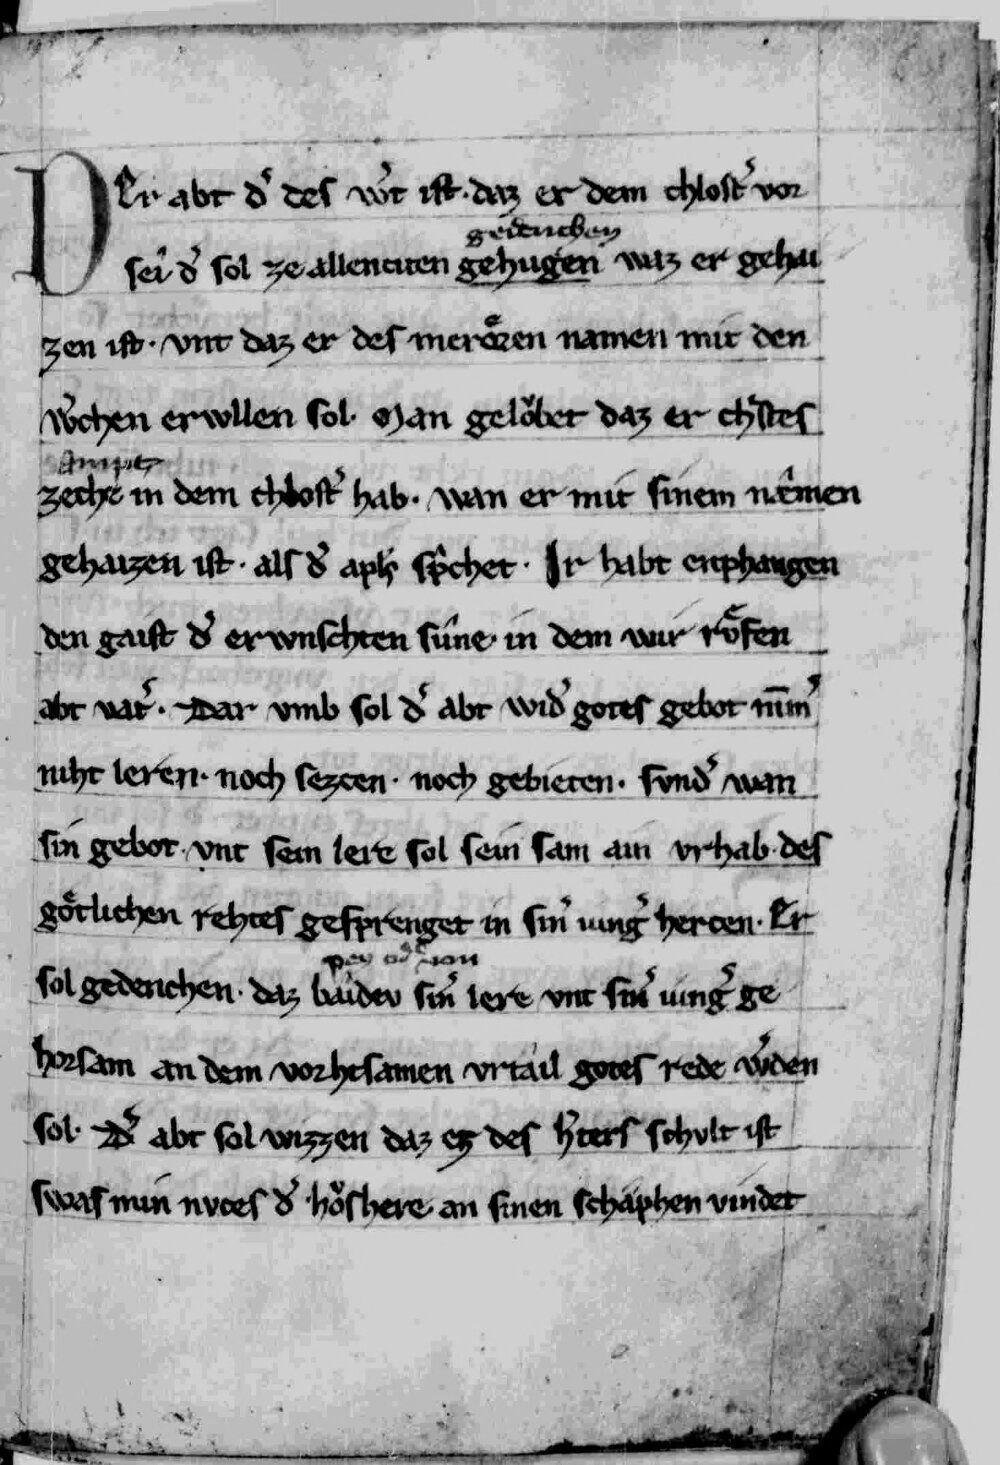 DEr abt d͛ des w͛t ist. daz er dem chlost͛ vor
gedenchen
sei d͛ sol ze allen citen gehugen waz er gehai
zen ist. vnt daz er des meroͤren namen mit den
w͛chen erwllen sol. Man geloͤbet daz er ch͛stes
Ampt
zeche in dem chlost͛ hab. wan er mit sinem næmen
gehaizen ist. als d͛ apl͛s sp͛chet. Ir habt enphangen
den gaist d͛ erwnschten sûne. in dem wir roͤfen
abt vat͛. Dar vmb sol d͛ abt wid͛ gotes gebot nīm͛
niht leren. noch sezcen. noch gebieten. svnd͛ wan
sin gebot. vnt sein lere sol sein sam ain vrhab des
goͤtlichen rehtes gesprenget in sin͛ iung͛ hercen. Er
pey von
sol gedenchen. daz baidev sin͛ lere vnt sin͛ iung͛ ge
horsam an dem vorhtsamen vrtail gotes rede w͛den
sol. D͛ abt sol wizzen daz ez des h͛ters schvlt ist
swas min nvces d͛ hoͮshere an sinen schaphen vindet